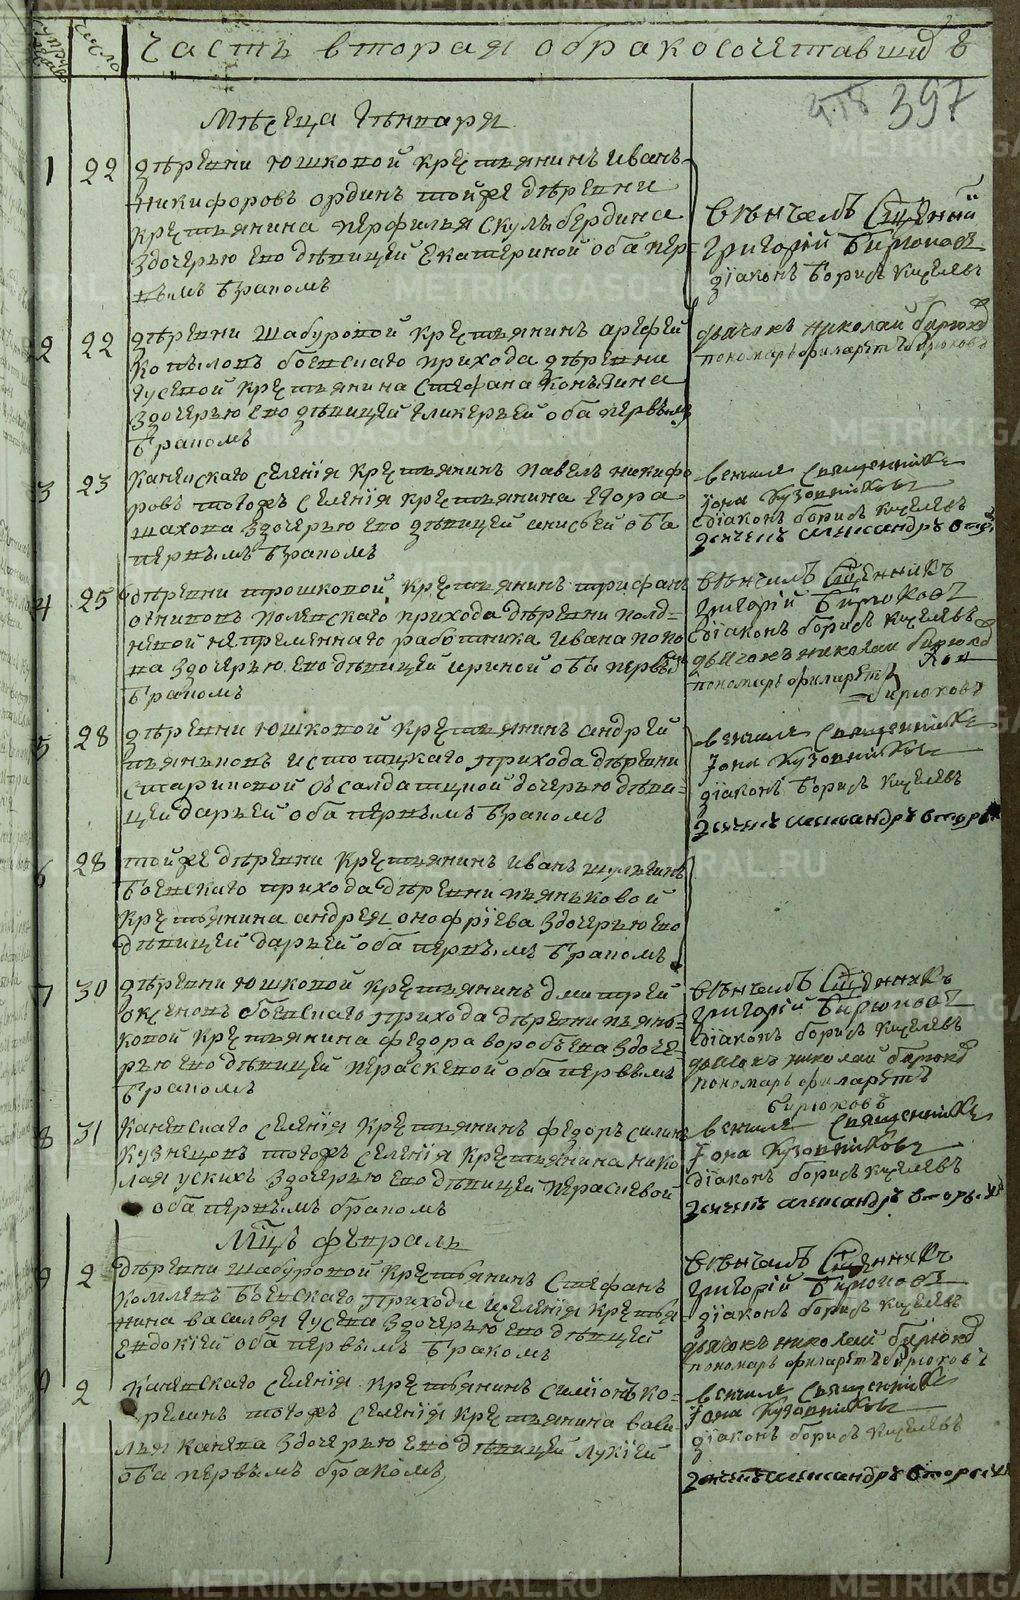 число
часть вторая обракосочетавшихся
397
Мѣсеца Генваря
1 22 деревни Юшковой крестьянинъ Иванъ
Никифоровъ ординъ тойже деревни
крестьянина Перфилья Скулыбердина
здочерью ево девицей Екатериной оба пер-
вымъ бракомъ
венчалъ Священникъ
Григорій Бирюковъ
діаконъ Борисъ Киселевъ
дьячокъ Николай Бирюков
пономарь Филаретъ Бирюковъ
2 22 деревни Шабуровой крестьянинъ Арефей
Копыловъ боевскаго прихода деревни
Гусевой крестьянина Стефана Конь
здочерью ево девицей Гликерьей оба первымъ
бракомъ
3 23 Каневскаго селенія крестьянинъ Павелъ Никифо
ровъ тогожъ селенія крестьянина Егора
Шахова здочерью ево девицей Анисьей оба
первымъ бракомъ
венчалъ Священникъ
Іона Кузовниковъ
діаконъ Борисъ Киселевъ
Александръ
4 25 деревни Трошковой крестьянинъ Трифанъ
прихода деревни Полд-
невой непременнаго работника Ивана Попо
ва здочерью ево девицей Ириной оба первымъ
бракомъ
венчалъ Священникъ
Григорій Бирюковъ
діаконъ Борисъ Киселевъ
дьячокъ Николай Бирюков
пономарь Филаретъ
Бирюковъ
5 28 деревни Юшковой крестьянинъ Андрей
Пьянковъ прихода деревни
Стариковой Салдатцкой дочерью деви-
цей Дарьей оба первымъ бракомъ
венчалъ Священникъ
Іона Кузовниковъ
діаконъ Борисъ Киселевъ
Александръ
6 28 тойже деревни крестьянинъ Иванъ
боевскаго прихода деревни Пьяньковой
крестьянина Андрея Онофріева здочерью ево
девицей Дарьей оба первымъ бракомъ
7 30 деревни Юшковой крестьянинъ Дмитрей
Оксеновъ боевскаго прихода деревни Пьян-
ковой крестьянина Федора Воробьева здоче
рью ево девицей Пераскевой оба первымъ
бракомъ
венчалъ Священникъ
Григорій Бирюковъ
діаконъ Борисъ Киселевъ
дьячокъ Николай Бирюков
пономарь Филаретъ
Бирюковъ
8 31 Каневскаго селенія крестьянинъ Федоръ Силинъ
Кузнецовъ тогожъ селенія крестьянина Нико
лая Ускихъ здочерью ево девицей Пераскевой
оба первымъ бракомъ
венчалъ Священникъ
Іона Кузовниковъ
діаконъ Борисъ Киселевъ
Александръ
Мцъ Февраль
9 2 деревни Шабуровой крестьянинъ Стефанъ
Комлевъ Боевскаго прихода и селенія крестья
нина Василья Гусева здочерью ево девицей
Евдокіей оба первымъ бракомъ
венчалъ Священникъ
Григорій Бирюковъ
діаконъ Борисъ Киселевъ
дьячокъ Николай Бирюков
пономарь Филаретъ Бирюковъ
2 Каневскаго селенія крестьянинъ Симіонъ Ко-
релинъ тогожъ селенія крестьянина Васи
лья Канева здочерью ево девицей Лукіей
оба первымъ бракомъ
венчалъ Священникъ
Іона Кузовниковъ
діаконъ Борисъ Киселевъ
Александръ
METRIKI.GASO-URAL.RU